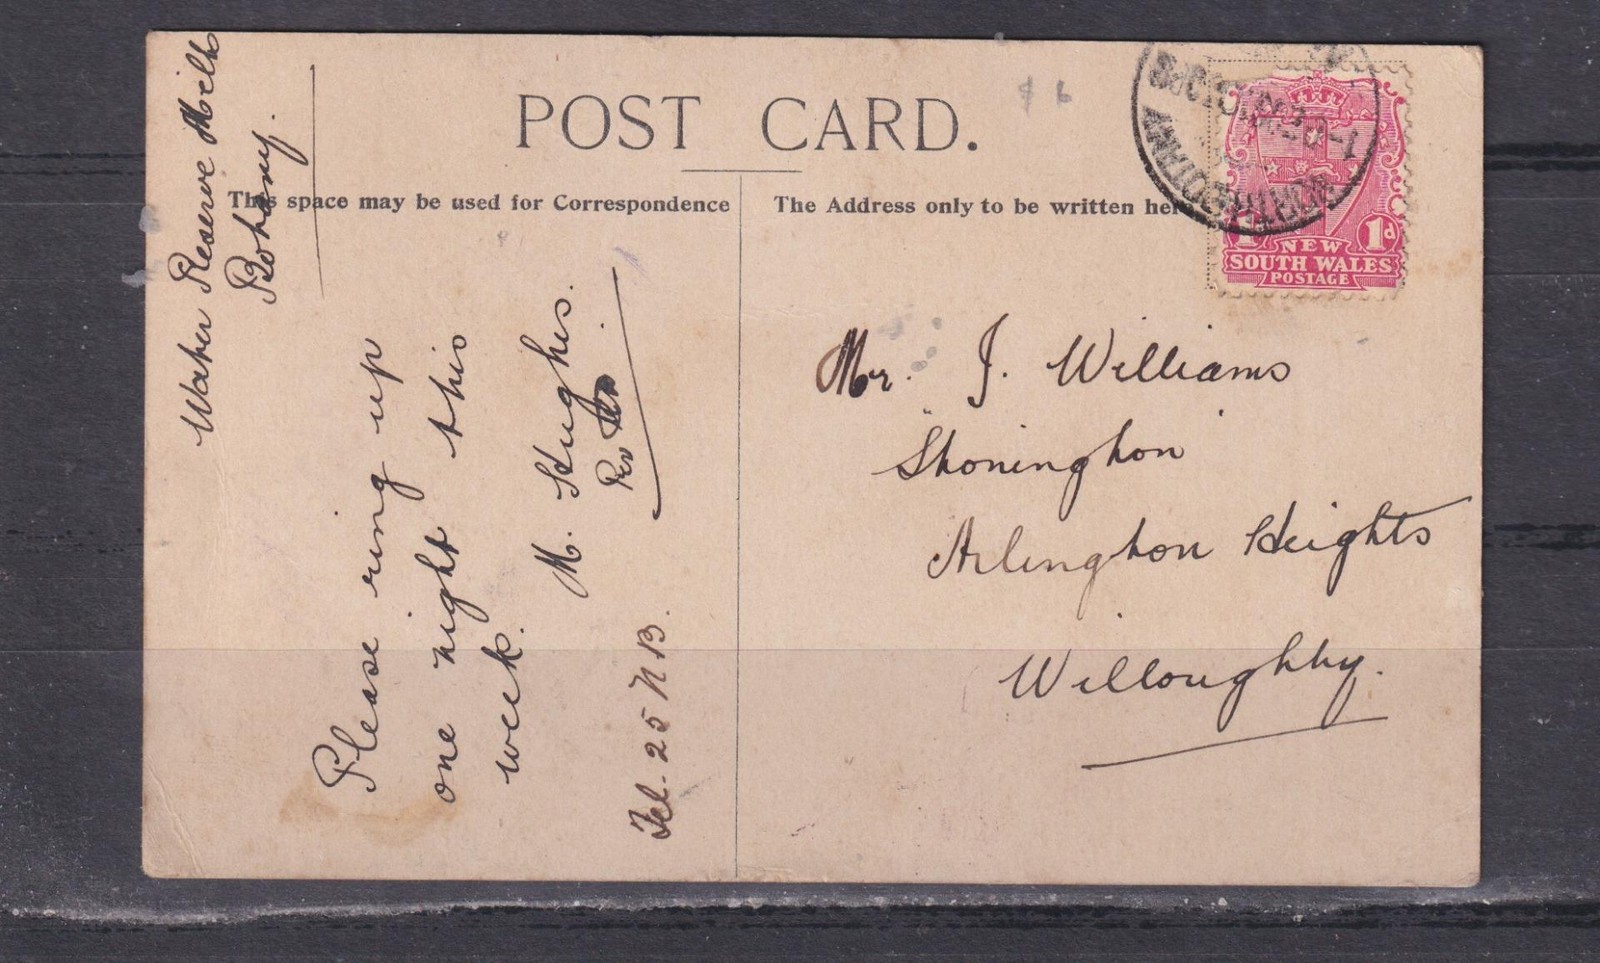 POST CARD.
This space may be used for Correspondence
The Address only to be written here
Water Reserve Mills
Botany.
Please ring up
one night this
week.
M. Hughes.
Per
Tel. 25 N B.
Mr. J. Williams
Stonington
Arlington Heights
Willoughby.
NORTH BOTANY
1 1d
NEW
SOUTH WALES
POSTAGE